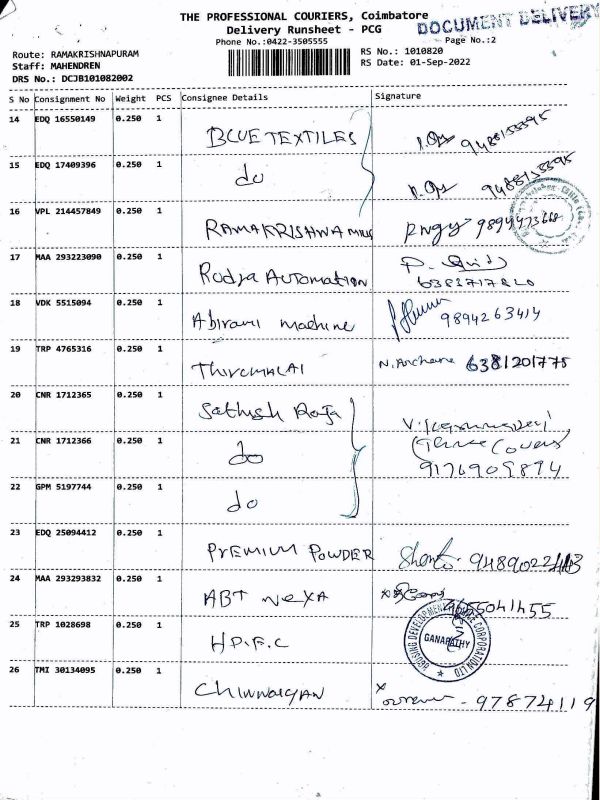 THE PROFESSIONAL COURIERS, Coimbatore
DOCUMENT DELIVERY
Delivery Runsheet - PCG
Phone No.:0422-3505555
Page No.:2
Route: RAMAKRISHNAPURAM
RS No.: 1010820
Staff: MAHENDREN
RS Date: 01-Sep-2022
DRS No.: DCJB101082002
S No Consignment No Weight PCS Consignee Details Signature
14 EDQ 16550149 0.250 1 BLUE TEXTILES 9488153395
15 EDQ 17409396 0.250 1 do 9488153395
16 VPL 214457849 0.250 1 RAMAKRISHNA MILLS
17 MAA 293223090 0.250 1 Rudra Automation
18 VDK 5515094 0.250 1 Abirami machine 9894263414
19 TRP 4765316 0.250 1 THIRUMALAI N. Archana 6381201775
20 CNR 1712365 0.250 1 Sathish Raja
21 CNR 1712366 0.250 1 do
9176909894
22 GPM 5197744 0.250 1 do
23 EDQ 25094412 0.250 1 PREMIUM POWDER
24 MAA 293293832 0.250 1 ABT NEXA
25 TRP 1028698 0.250 1 H.D.F.C
HOUSING DEVELOPMENT FINANCE CORPORATION LTD
GANAPATHY
26 TMI 30134095 0.250 1 CHINNAIYAN 97874119